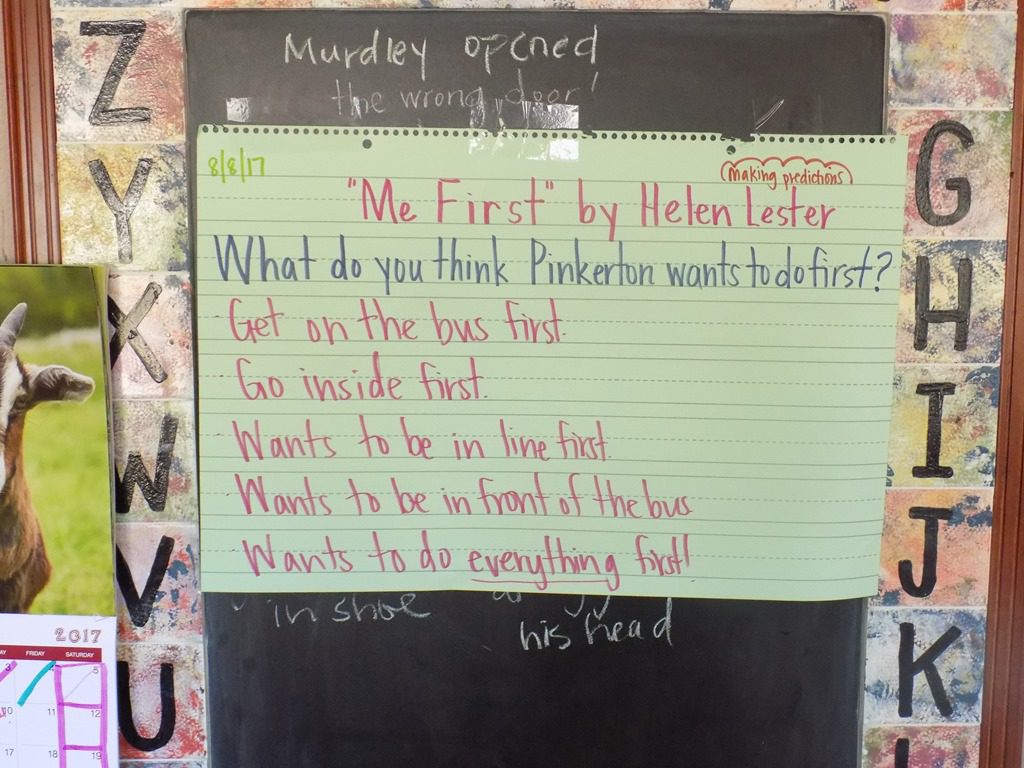 Murdley opened
the wrong door!
8/8/17
making predictions
"Me First" by Helen Lester
What do you think Pinkerton wants to do first?
- Get on the bus first.
- Go inside first.
- Wants to be in line first.
- Wants to be in front of the bus
- Wants to do everything first!
in shoe
his head
Z
Y
X
W
V
U
G
H
I
J
K
2017
FRIDAY
SATURDAY
3 4 5
10 11 12
17 18 19